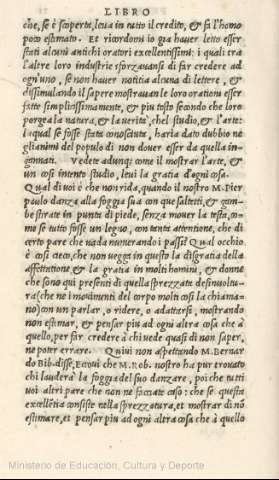 LIBRO
che, se è scoperta, leua in tutto il credito, & fa l'homo
poco estimato. Et ricordomi io gia hauer letto esser
stati alcuni antichi oratori excellentissimi: i quali tra
l'altre loro industrie sforzauansi di far credere ad
ogn'uno, se non hauer notitia alcuna di lettere, &
dissimulando il sapere mostrauan le loro orationi esser
fatte simplicissimamente, & piu tosto secondo che loro
porgea la natura, & la uerità, chel studio, & l'arte:
la qual se fosse stata conosciuta, haria dato dubbio ne
gli animi del populo di non douer esser da quella in=
gannati. Vedete adunque come il mostrar l'arte, &
un cosi intento studio, leui la gratia d'ogni cosa.
Qual di uoi è che non rida, quando il nostro M. Pier
paulo danza alla foggia sua con que saltetti, & gam=
be stirate in punta di piede, senza mouer la testa, co=
me se tutto fosse un legno, con tanta attentione, che di
certo pare che uada numerando i passi? Qual occhio
è cosi cieco, che non uegga in questo la disgratia della
affettatione, & la gratia in molti homini, & donne
che sono qui presenti di quella sprezzata desinuoltu=
ra (che ne i mouimenti del corpo molti cosi la chiama=
no) con un parlar, o ridere, o adattarsi, mostrando
non estimar, & pensar piu ad ogni altra cosa che à
quello, per far credere à chi uede quasi di non saper,
ne poter errare. Quiui non aspettando M. Bernar
do Bib. disse, Eccoui che M. Rob. nostro ha pur trouato
chi laudera la foggia del suo danzare, poi che tutti
uoi altri pare che non ne facciate caso: che se questa
excellētia consiste nella sprezzatura, et mostrar di nō
estimare, et pensar piu ad ogni altra cosa che à quello
Ministerio de Educación, Cultura y Deporte